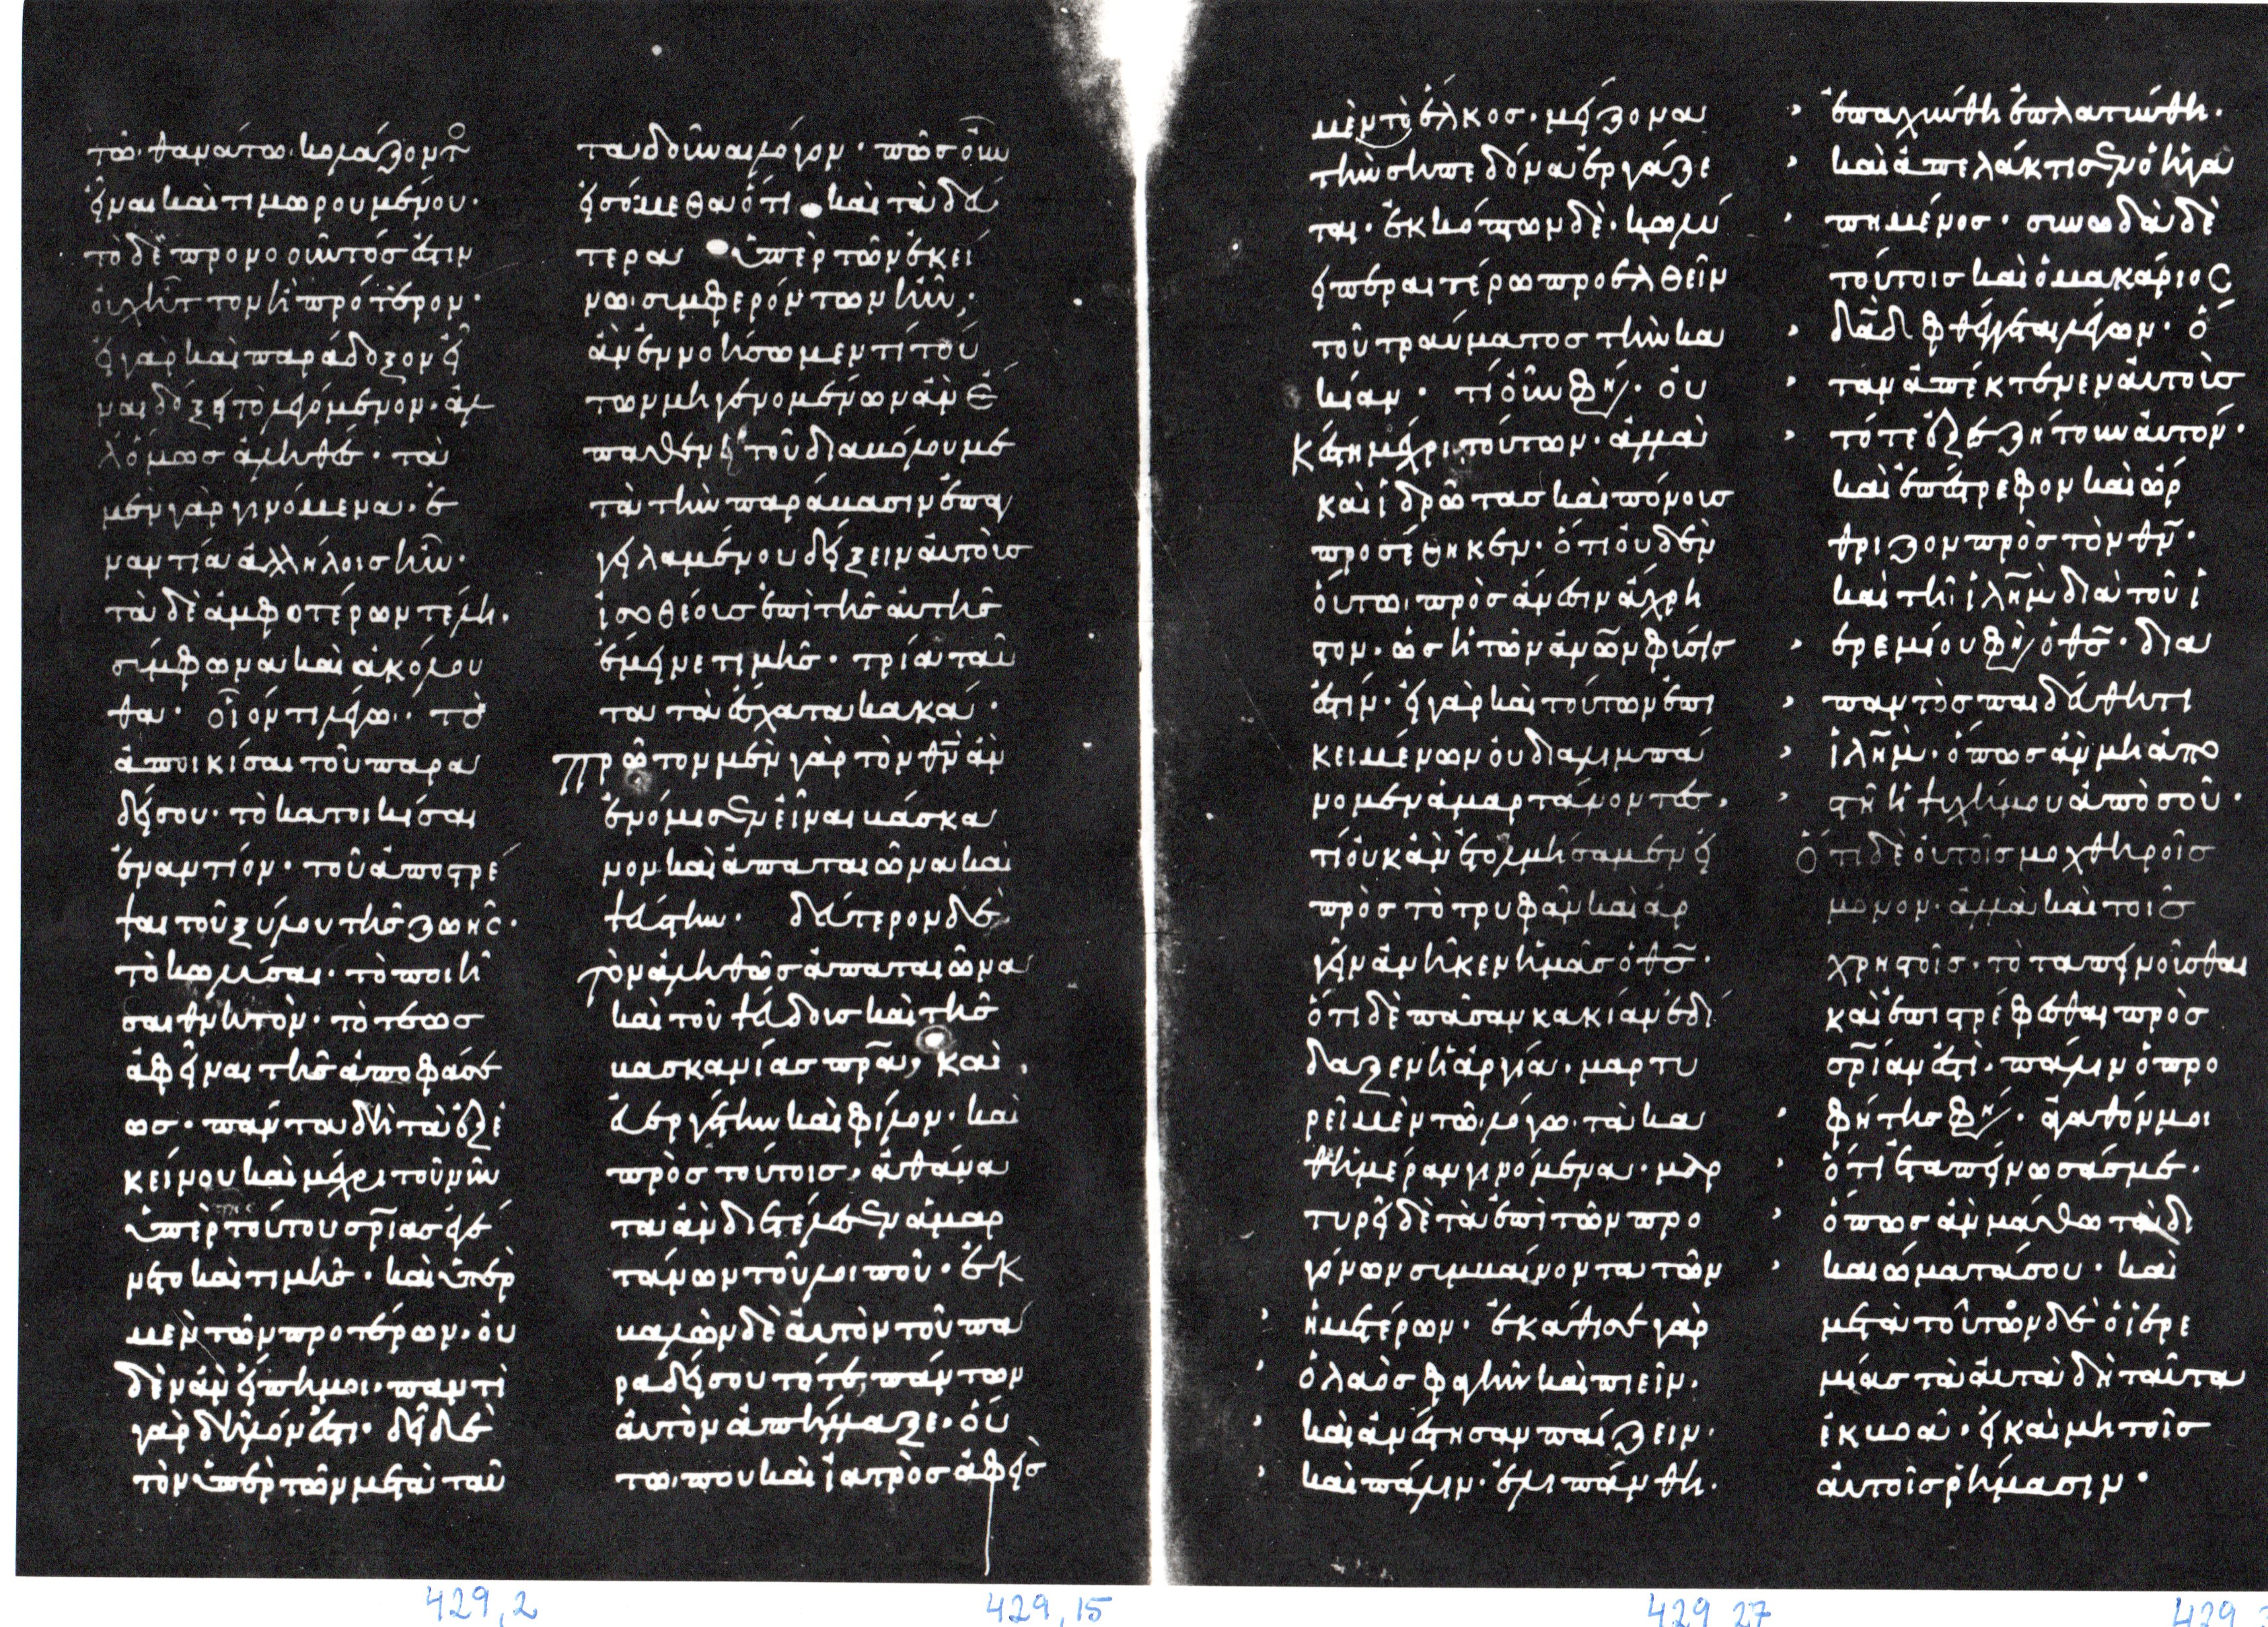 τῶ θανάτω κολάζοντο
εἶναι καὶ τιμωρουμένου·
τὸ δὲ προνοοῦντός ἐστιν
οὐχ ἧττον ἢ πρότερον·
εἰ γὰρ καὶ παράδοξον εἶ
ναι δόξει τὸ λεγόμενον· ἀλ
λ' ὅμως ἀληθές· τὰ
μὲν γὰρ γινόμενα· ἐ
ναντία ἀλλήλοις ἦν·
τὰ δὲ ἀμφοτέρων τέλη·
σύμφωνα καὶ ἀκόλου
θα· οἷόν τι λέγω· τὸ
ἀποικίσαι τοῦ παρα
δείσου· τὸ κατοικίσαι
ἐναντίον· τοῦ ἀποστρέ
ψαι τοῦ ξύλου τῆς ζωῆς·
τὸ κωλύσαι· τὸ ποιῆ
σαι θνητὸν· τὸ τέως
ἀφεῖναι τῆς ἀποφάσε
ως· πάντα δὴ τὰ ἐξ ἐ
κείνου καὶ μέχρι τοῦ νῦν
ὑπὲρ τούτου σρίας ἐγέ
νετο καὶ τιμῆς· καὶ ὑπὲρ
μὲν τῶν προτέρων· οὐ
δὲν ἂν εἴποιμι· παντὶ
γὰρ δῆλόν ἐστι· δεῖ δὲ
τὸν ὑπὲρ τῶν μετὰ ταῦ
τα δοῦναι λόγον· πῶς οὖν
εἰσόμεθα ὅτι καὶ τὰ δεύ
τερα ὑπὲρ τῶν ἐκεί
νω συμφερόντων ἦν·
ἂν ἐννοήσωμεν τί τού
των μὴ γενομένων ἂν ἔ
παθεν· εἰ τοῦ διαβόλου με
τὰ τὴν παράβασιν ἐπα
γειλαμένου δείξειν αὐτοὺς
ἰσοθέους ἐπὶ τῆς αὐτῆς
ἔμεινε τιμῆς· τρία ταῦ
τα τὰ ἔσχατα κακά·
πρῶτον μὲν γὰρ τὸν θν ἂν
ἐνόμισεν εἶναι βάσκα
νον καὶ ἀπαταιῶνα καὶ
ψεύστην· δεύτερον δὲ
τὸν ἀληθῶς ἀπαταιῶνα
καὶ τοῦ ψεύδους καὶ τῆς
βασκανίας πρα, καὶ
εὐεργέτην καὶ φίλον· καὶ
πρὸς τούτοις, ἀθάνα
τα ἂν διετέλεσεν ἁμαρ
τάνων τοῦ λοιποῦ· ἐκ
βαλὼν δὲ αὐτὸν τοῦ πα
ραδείσου τότε, πάντων
αὐτὸν ἀπήλλαξε· οὕ
τω που καὶ ἰατρὸς ἀφεὶς
μὲν τὸ ἕλκος· μείζονα
τὴν σηπεδόνα ἐργάζε
ται· ἐκκόπτων δὲ· κωλύ
ει περαιτέρω προελθεῖν
τοῦ τραύματος τὴν κα
κίαν· τί οὖν φη· οὐ
κ ἔστη μέχρι τούτων· ἀλλὰ
καὶ ἱδρῶτας καὶ πόνους
προσέθηκεν· ὅτι οὐδὲν
οὕτω πρὸς ἄνεσιν ἄχρη
στον· ὡς ἡ τῶν ἀνων φύσις
ἐστίν· εἰ γὰρ καὶ τούτων ἐπι
κειμένων οὐ διαλιμπά
νομεν ἁμαρτάνοντες·
τί οὐκ ἂν ἐτολμήσαμεν εἰ
πρὸς τὸ τρυφᾶν καὶ ἀρ
γεῖν ἀνῆκεν ἡμᾶς ὁ θς·
ὅτι δὲ πᾶσαν κακίαν ἐδί
δαξεν ἡ ἀργία· μαρτυ
ρεῖ μὲν τῶ λόγω τὰ κα
θημέραν γινόμενα· μαρ
τυρεῖ δὲ τὰ ἐπὶ τῶν προ
γόνων συμβαίνοντα τῶν
ἡμετέρων· ἐκάθισε γὰρ
ὁ λαὸς φαγεῖν καὶ πιεῖν·
καὶ ἀνέστησαν παίζειν·
καὶ πάλιν· ἐλιπάνθη·
ἐπαχύνθη ἐπλατύνθη·
καὶ ἀπελάκτισεν ὁ ἠγα
πημένος· συνωδὰ δὲ
τούτοις καὶ ὁ μακάριος
δαδ φθέγγεται λέγων· ὅ
ταν ἀπέκτενεν αὐτοὺς
τότε ἐξεζήτουν αὐτόν·
καὶ ἐπέστρεφον καὶ ὤρ
θριζον πρὸς τὸν θν·
καὶ τῆ ιλημ διὰ τοῦ ἱ
ερεμίου φη ὁ θς· δια
παντὸς παιδεύθητι
ιλημ· ὅπως ἂν μὴ ἀπο
στῆ ἡ ψυχή μου ἀπὸ σοῦ·
Ὅτι δὲ οὐ τοῖς μοχθηροῖς
μόνον· ἀλλὰ καὶ τοῖς
χρηστοῖς· τὸ ταπεινοῦσθαι
καὶ ἐπιστρέφεσθαι πρὸς
σρίαν ἐστὶ· πάλιν ὁ προ
φήτης φη· ἀγαθόν μοι
ὅτι ἐταπείνωσάς με·
ὅπως ἂν μάθω τὰ δι
καιώματά σου· καὶ
μετὰ τοῦτον δὲ ὁ ἱερε
μίας τὰ αὐτὰ δὴ ταῦτα
ἐκβοᾶ· εἰ καὶ μὴ τοῖς
αὐτοῖς ῥήμασιν·
429,2
429,15
429 27
429